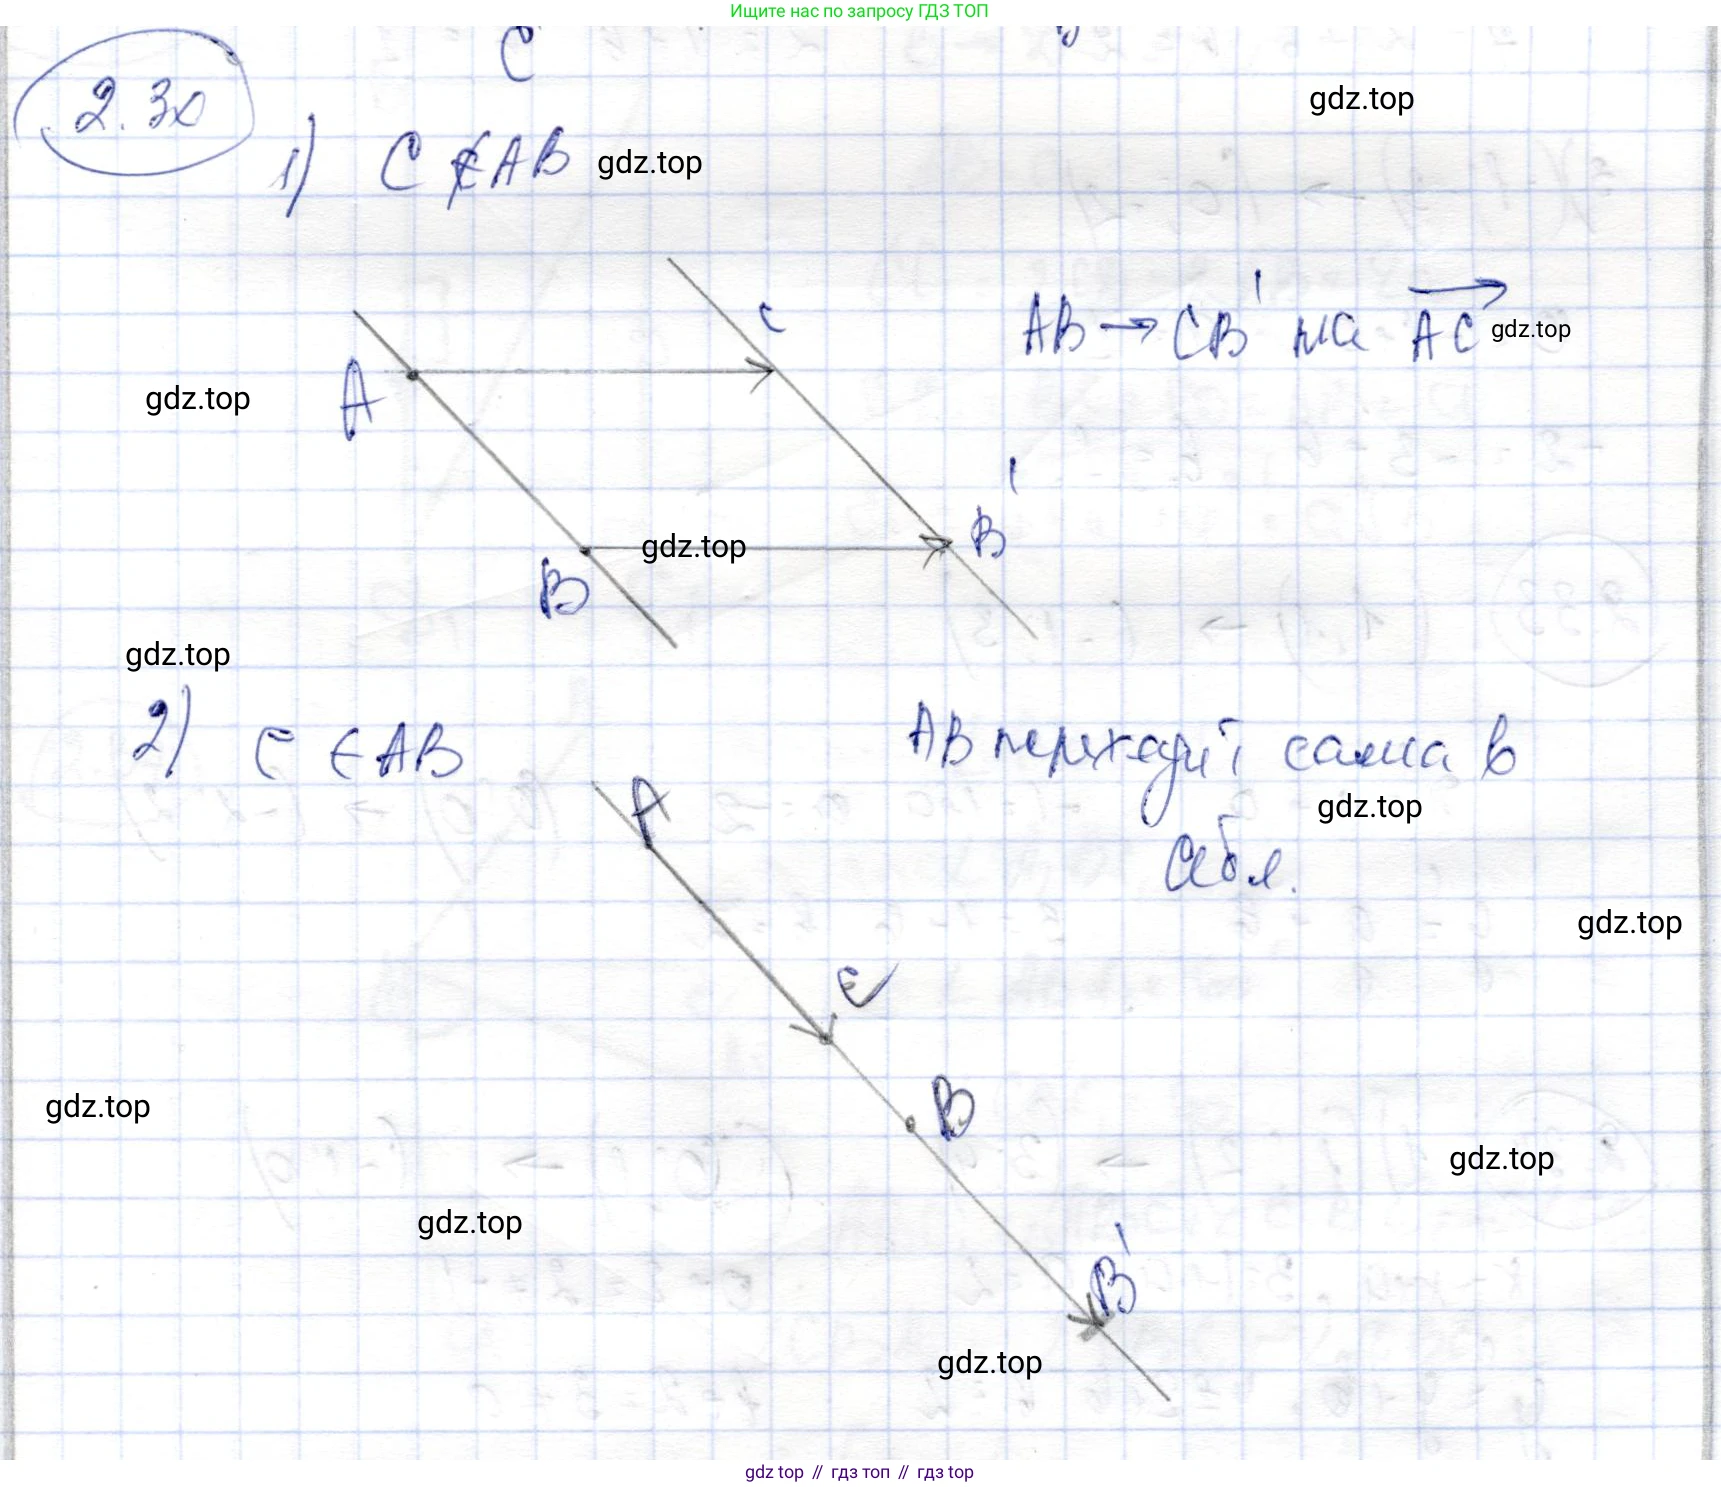 Ищите нас по запросу ГДЗ ТОП
C
gdz.top
2.30
1) C ∉ AB gdz.top
C
AB → CB' на AC gdz.top
A
gdz.top
B'
gdz.top
B
gdz.top
2) C ∈ AB
AB переходит сама в
себя.
A
gdz.top
gdz.top
C
B
gdz.top
gdz.top
gdz.top
B'
gdz.top
gdz top // гдз топ // гдз top